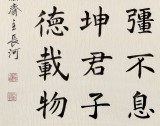 彊不息
坤君子
德載物
齋主長河